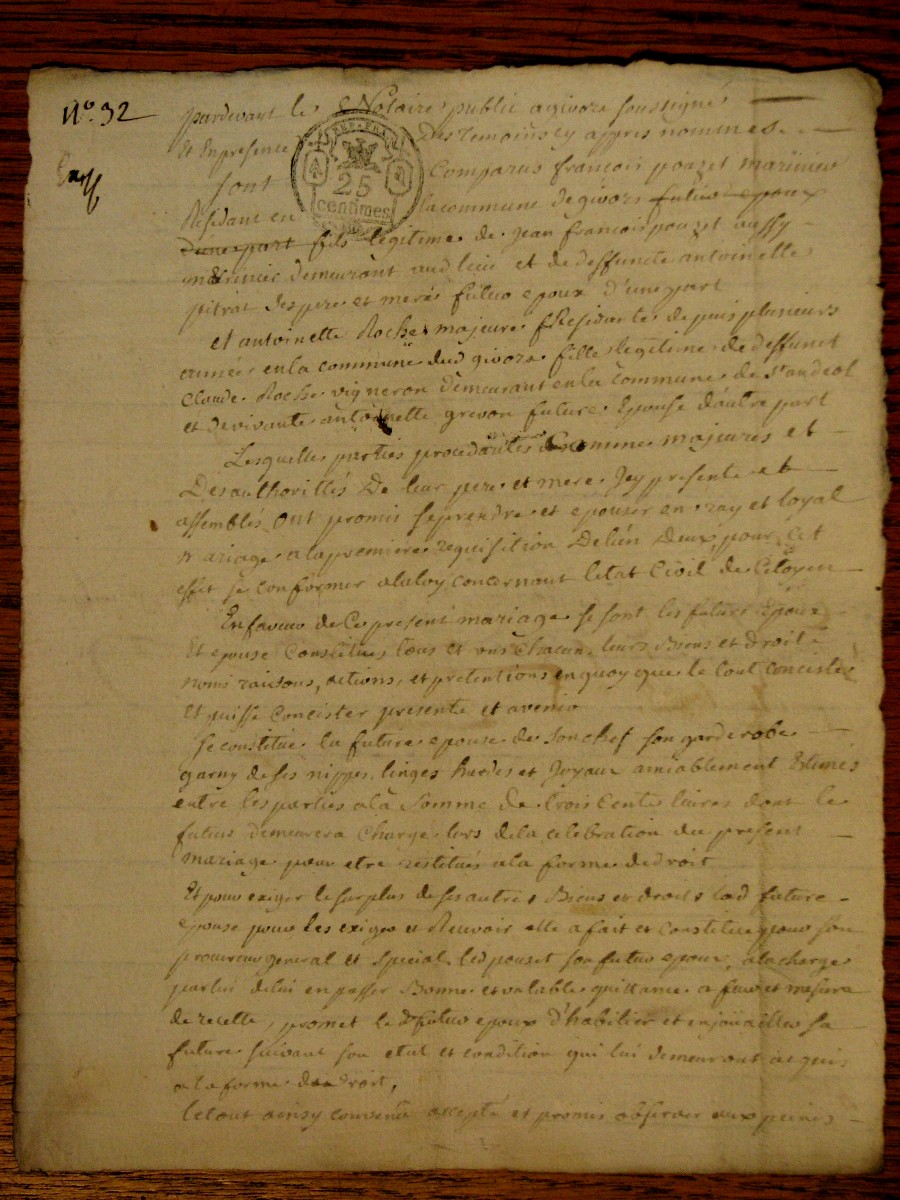 N°. 32
pardevant le Notaire public a givors soussigné
Et En presence des temoins cy appres nommés
REP. FRA.
25
centimes
sont Comparus francois pouzet marinier
Residant en la commune de givors futur epoux
d'une part fils legitime de jean francois pouzet aussy
marinier demeurant aud lieu et de deffuncte antoinette
pitrat ses pere et mere futur epoux d'une part
et antoinette Roche majeure Residante depuis plusieurs
année en la commune dud givors fille legitime de deffunct
Claude Roche vigneron demeurant en la commune de st andeol
et de vivante antoinette grevon future Epouse d'autre part
Lesquelles parties procedantes comme majeures et
Des authorittés De leur pere et mere Icy presente et
assemblés ont promis se prendre et epouser en vray et loyal
mariage a la premiere requisition De l'un Deux, pour cet
effet se conformer a la loy concernant l'etat Civil de Citoyen
En faveur de Ce present mariage se sont les future Epoux
Et epouse Constitués tous et uns chacun leurs Biens et droit
noms raisons, actions, et pretentions en quoy que le tout conciste
Et puisse concister presente et avenir
Se constitue la future epouse de son chef son garderobe
garny de ses nippes, linges hardes et Joyaux amiablement Estimés
entre les parties a la somme de trois cente livres dont le
futur demeurera Chargé lors de la celebration du present
mariage pour etre restitués a la forme de droit
Et pour exiger le surplus de ses autres Biens et droits lad future
epouse pour les exiger et Recevoir elle a fait et Constitue pour son
procureur general et special led pouzet son futur epoux, a la charge
par lui de lui en passer Bonne et valable quittance a fur et mesure
de recette, promet le d futur epoux d'habilier et enjoüailler sa
future suivant son etat et condition qui lui demeuront acquis
a la forme de droit,
le tout ainsy convenu accepté et promis observer aux peines